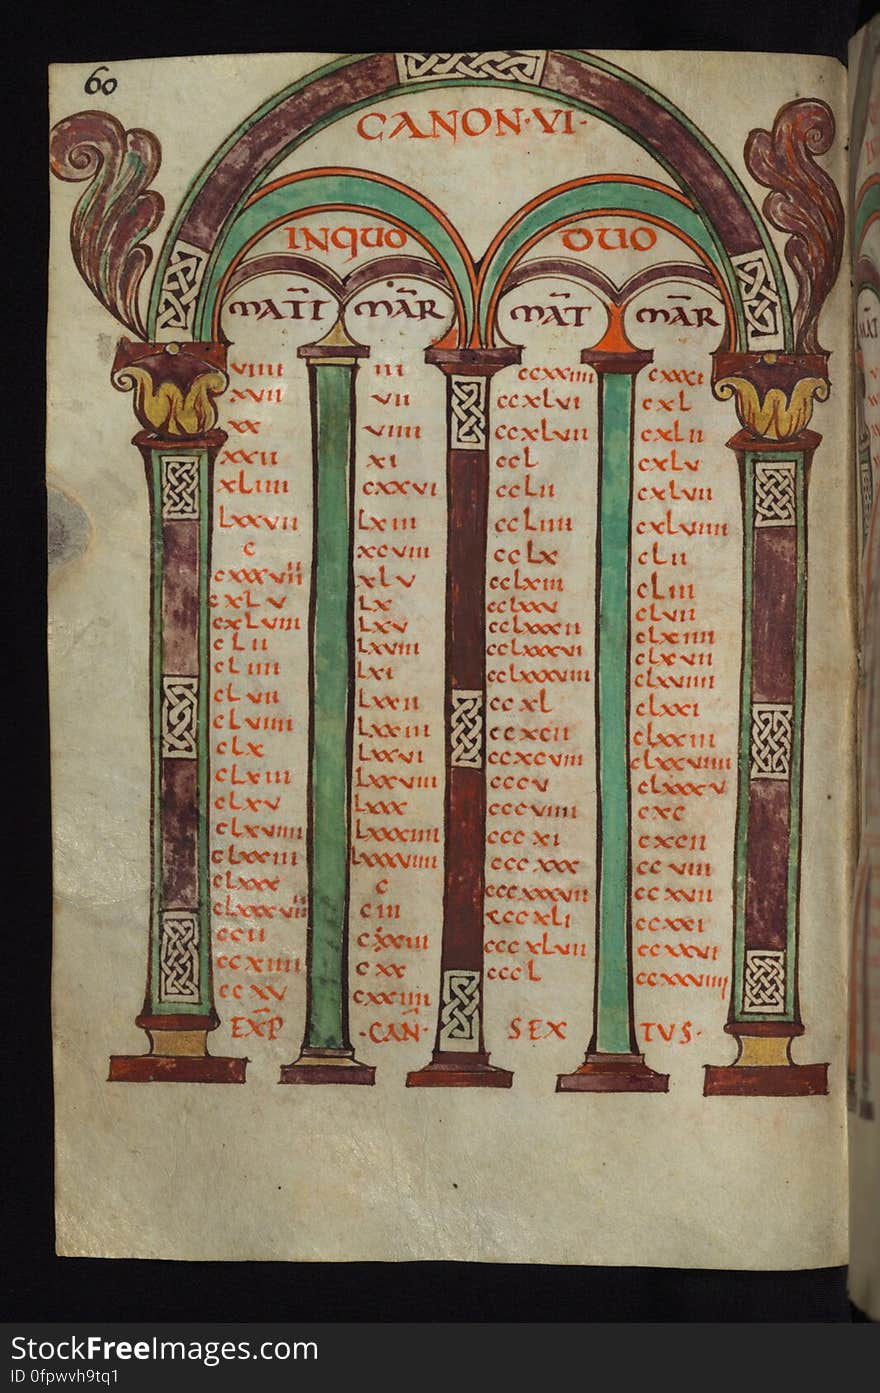 60
CANON·VI·
INQUO DUO
MATT MAR MAT MAR
VIIII III CCXXIIII CXXXI
XVII VII CCXLVI CXL
XX VIIII CCXLVII CXLII
XXII XI CCL CXLV
XLIIII CXXVI CCLII CXLVII
LXXVII LXIII CCLIIII CXLVIIII
C XCVIII CCLX CLII
CXXXVII XLV CCLXIII CLIII
CXLV LX CCLXXV CLVII
CXLVIII LXV CCLXXXII CLXIIII
CLII LXVIII CCLXXXVI CLXVII
CLIIII LXI CCLXXXVIII CLXVIIII
CLVII LXXII CCXL CLXXI
CLVIIII LXXIII CCXCII CLXXIII
CLX LXXVI CCXCVIII CLXXVIIII
CLXIII LXXVIII CCCV CLXXXV
CLXV LXXX CCCVIIII CXC
CLXVIIII LXXXIIII CCCXI CXCII
CLXXIII LXXXVIIII CCCXXX CCVIII
CLXXX C CCCXXXVII CCXVII
CLXXXVII CIII CCCXLI CCXXI
CCII CXXIII CCCXLVII CCXXVI
CCXIIII CXX CCCL CCXXVIIII
CCXV CXXIIII
EXP ·CAN· SEX TVS·
StockFreeImages.com
ID 0fpwvh9tq1